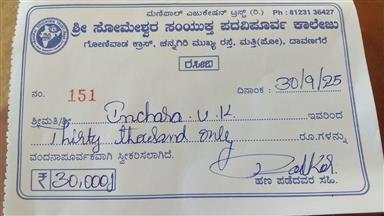 ಮಣಿಪಾಲ್ ಎಜುಕೇಷನ್ ಟ್ರಸ್ಟ್ (ರಿ.) Ph : 81231 36427
ಶ್ರೀ ಸೋಮೇಶ್ವರ ಸಂಯುಕ್ತ ಪದವಿಪೂರ್ವ ಕಾಲೇಜು
ಗೋಣಿವಾಡ ಕ್ರಾಸ್, ಚನ್ನಗಿರಿ ಮುಖ್ಯ ರಸ್ತೆ, ಮತ್ತಿ (ಪೋ), ದಾವಣಗೆರೆ
ರಸೀದಿ
ನಂ. 151 ದಿನಾಂಕ : 30/9/25
ಶ್ರೀಮತಿ/ಶ್ರೀ Inchara. U.K ಇವರಿಂದ
Thirty thousand only ರೂ.ಗಳನ್ನು
ವಂದನಾಪೂರ್ವಕವಾಗಿ ಸ್ವೀಕರಿಸಲಾಗಿದೆ.
₹ 30,000/
ಹಣ ಪಡೆದವರ ಸಹಿ.